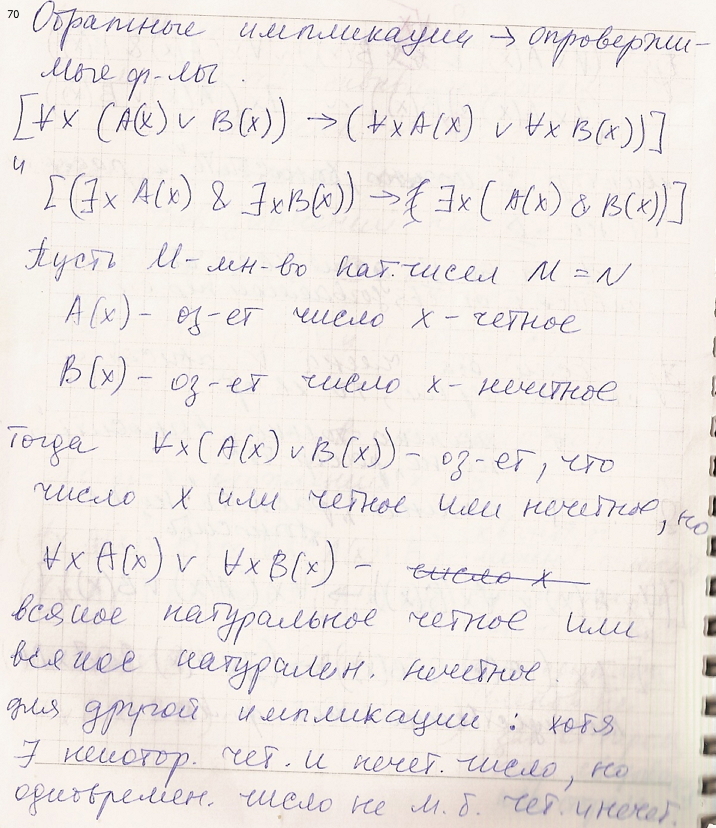 70
Обратные импликации → опровержи-
мые ф-лы.
[∀x (A(x) ∨ B(x)) → (∀x A(x) ∨ ∀x B(x))]
и
[(∃x A(x) & ∃x B(x)) → ∃x (A(x) & B(x))]
Пусть M - мн-во нат. чисел M = N
A(x) - оз-ет число x - четное
B(x) - оз-ет число x - нечетное
Тогда ∀x (A(x) ∨ B(x)) - оз-ет, что
число x или четное или нечетное, но
∀x A(x) ∨ ∀x B(x) - число x
всякое натуральное четное или
всякое натуральн. нечетное.
для другой импликации: хотя
∃ некотор. чет. и нечет. число, но
одноврем​ен. число не м. б. чет. и нечет.